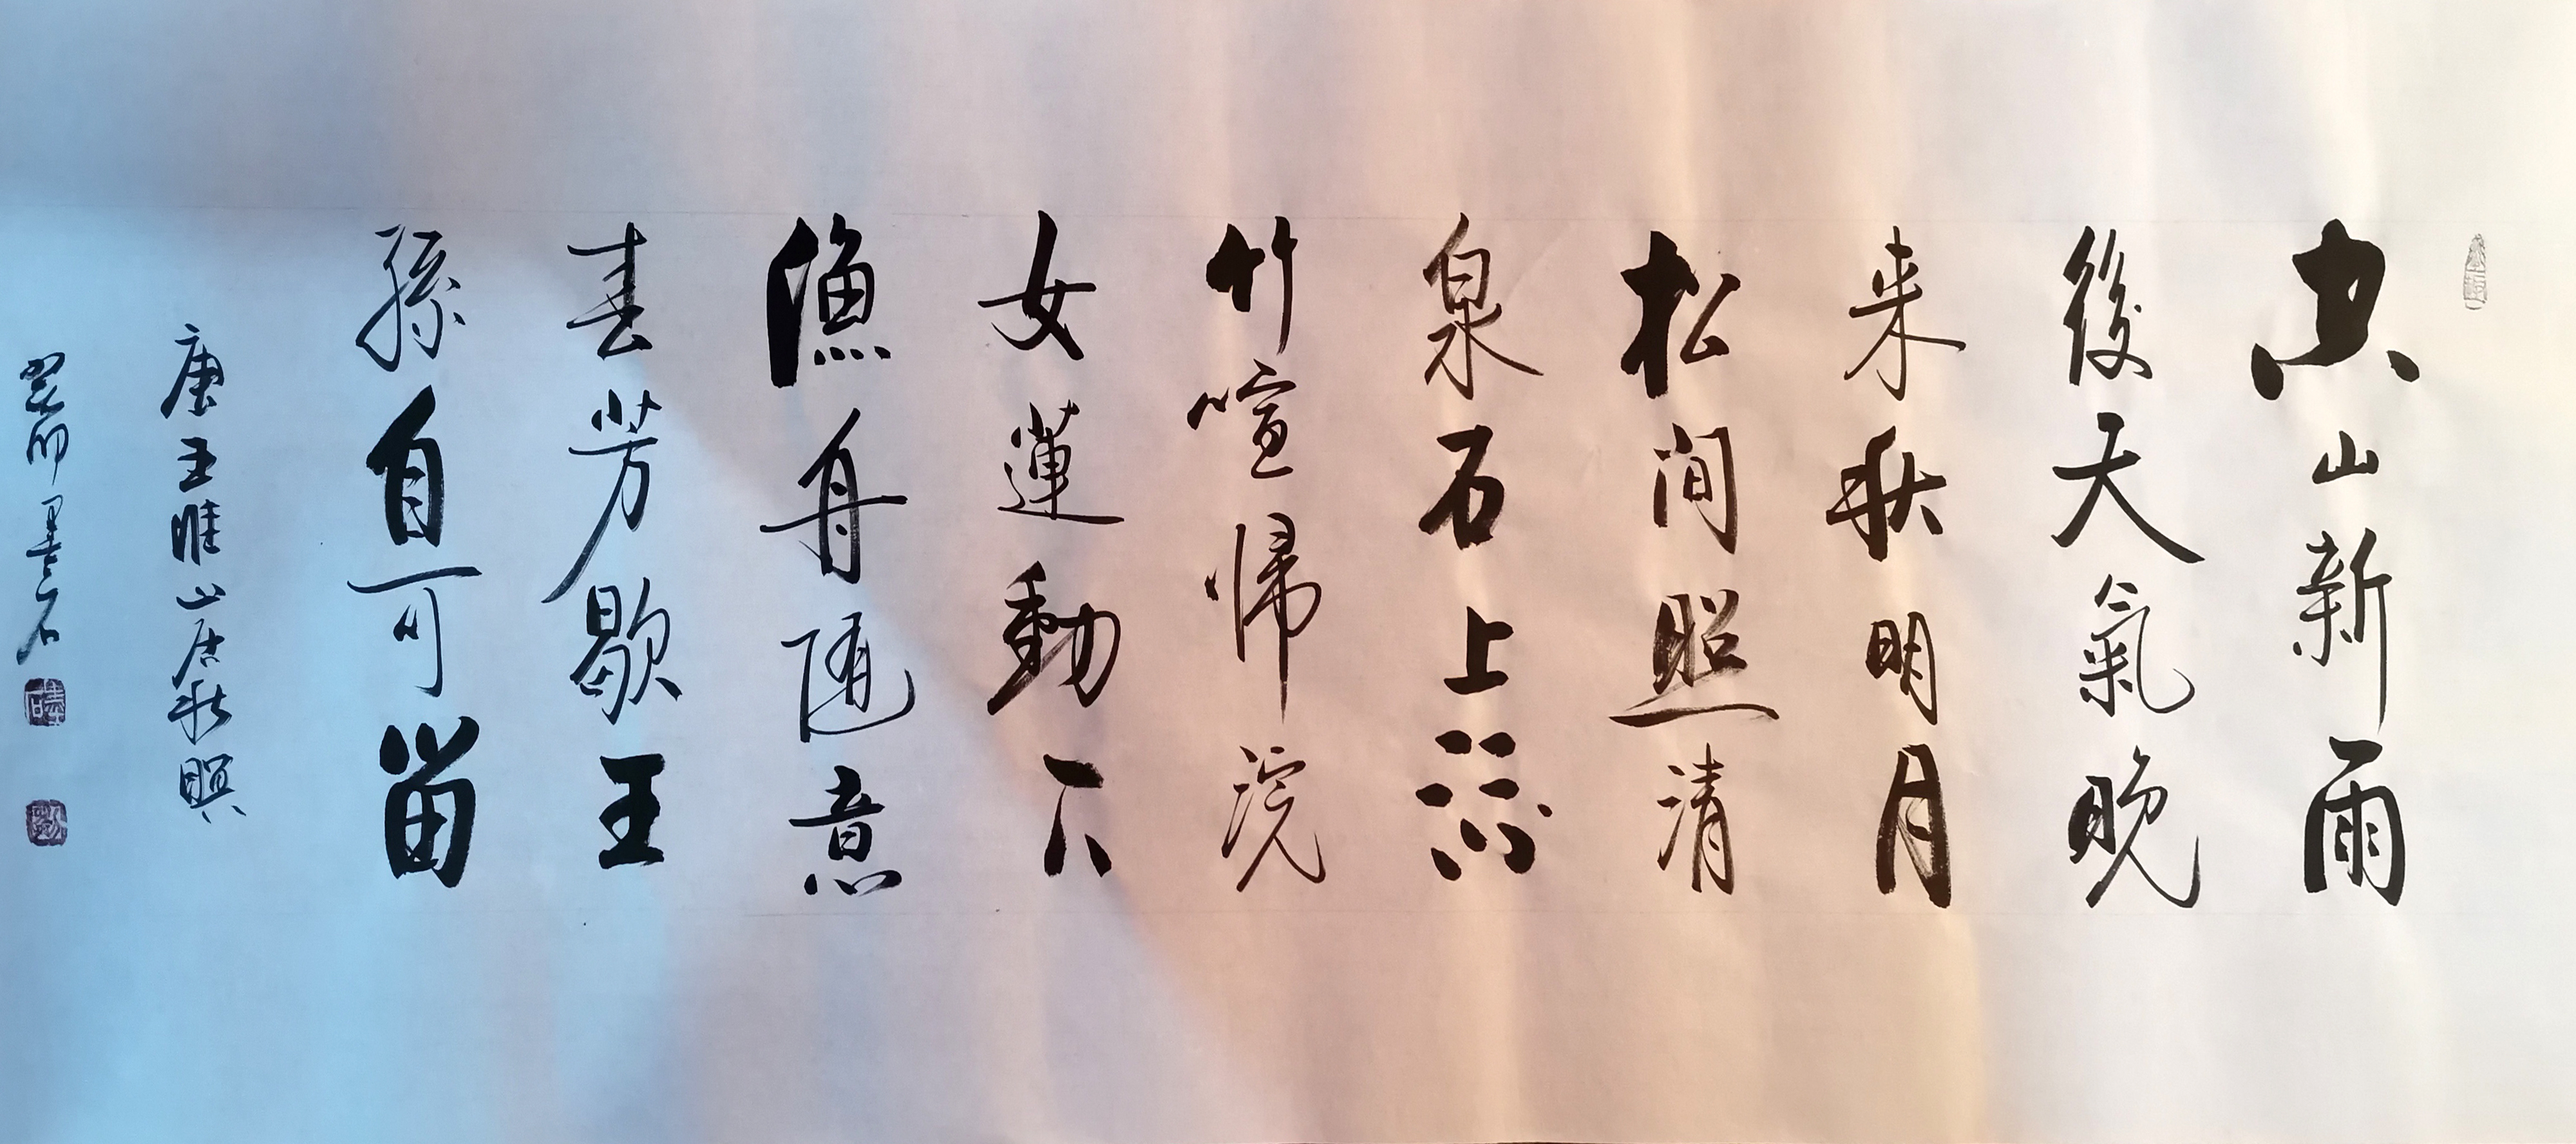 空山新雨
後天氣晚
来秋明月
松间照清
泉石上流
竹喧帰浣
女蓮動下
漁舟随意
春芳歇王
孫自可留
唐王維山居秋暝
墨石